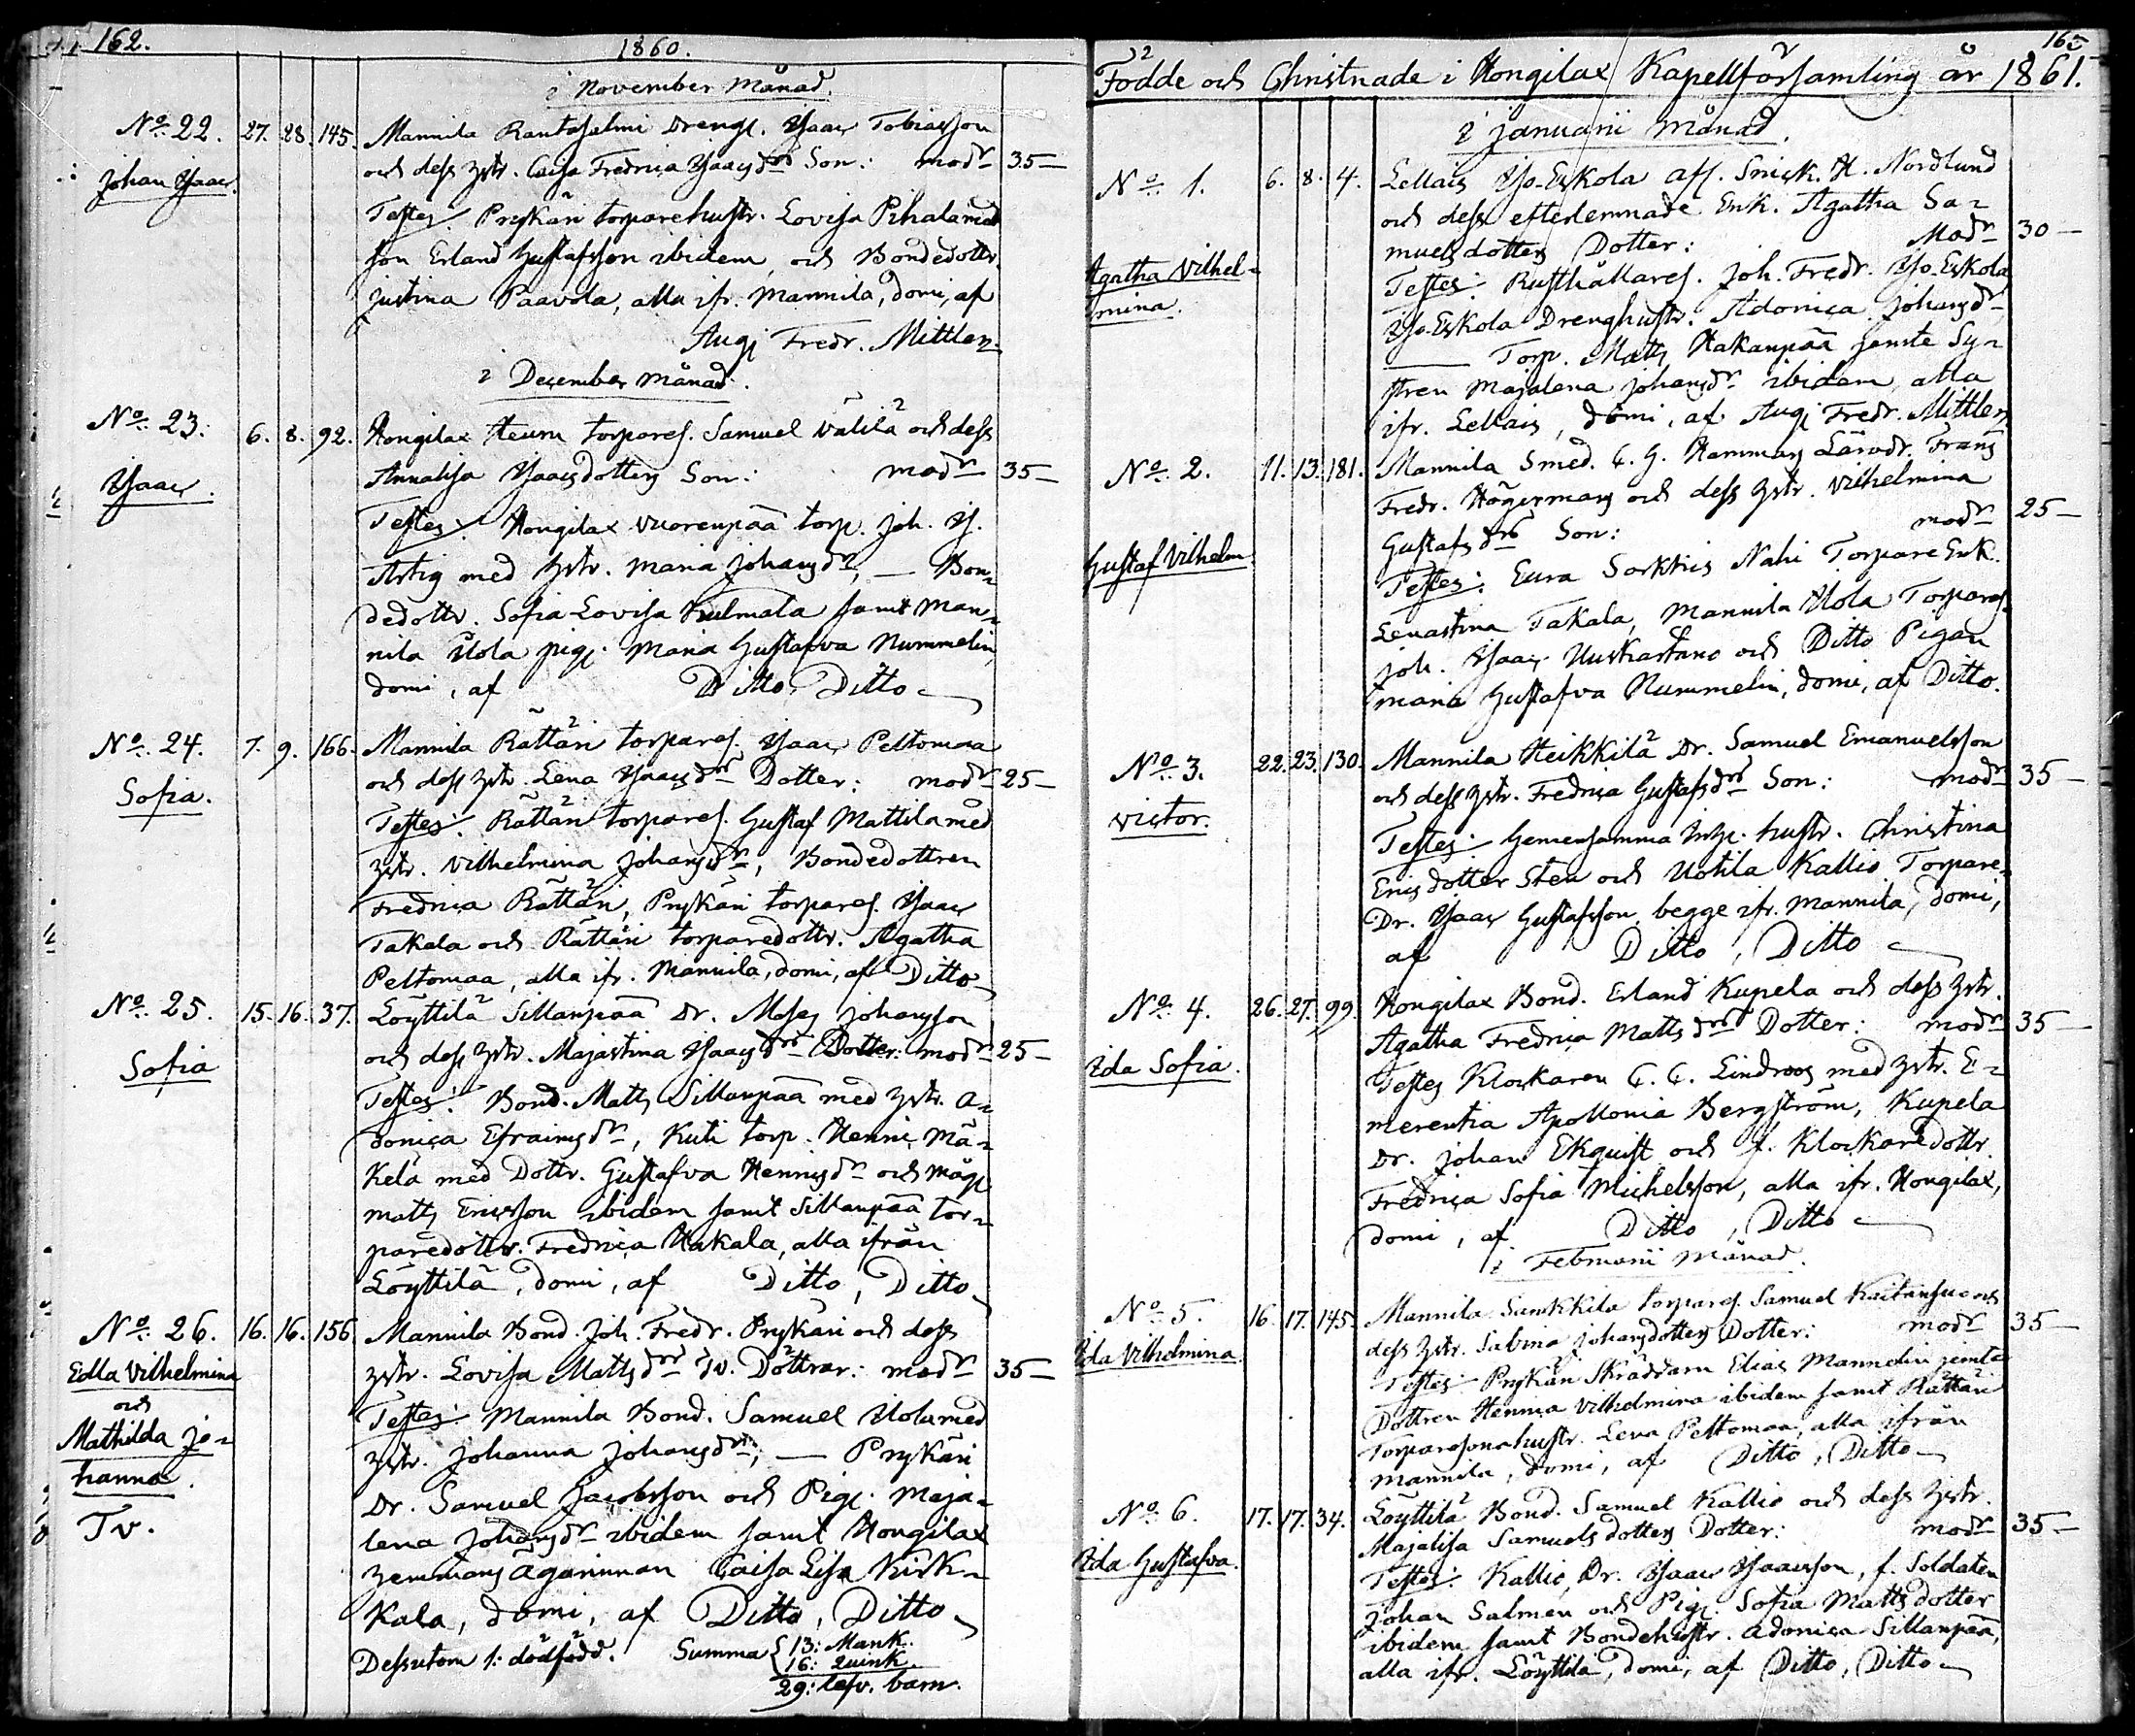 162.
1860.
i November månad.
No 22. 27. 28. 145. Mannila Rantasalmi Drengs. Isaac Tobiasson
Johan Isaac. och dess hstr. Caisa Fredrica Isaacsdrs Son: modr 35 —
Testes: Prykäri torparehustr. Lovisa Pihala med
son Erland Gustafsson ibidem och Bondedottr.
Justina Paavola, alla ifr. Mannila, domi, af
Augs Fredr. Mittler.
i December månad.
No 23. 6. 8. 92. Hongilax Heurn torpares. Samuel Välilä och dess
Isaac. Annalisa Isaacsdotters Son: modr 35 —
Testes: Hongilax Vuorenpää torp. Joh. Is.
Artig med hstr. Maria Johansdr, — Bon=
dedottr. Sofia Lovisa Kulmala samt Man=
nila Uola pigs. Maria Gustafva Nummelin,
domi, af Ditto, Ditto
No 24. 7. 9. 166. Mannila Rättäri torpares. Isaac Peltomaa
Sofia. och dess hstr. Lena Isaacsdrs Dotter: modr 25 —
Testes: Rättäri torpares. Gustaf Mattila med
hstr. Vilhelmina Johansdr, Bondedottren
Fredrica Rättäri, Prykäri torpares. Isaac
Takala och Rättäri torparedottr. Agatha
Peltomaa, alla ifr. Mannila, domi, af Ditto
No 25. 15. 16. 37. Löyttilä Sillanpää Dr. Moses Johansson
Sofia och dess hstr. Majastina Isaacsdrs Dotter: modr 25 —
Testes: Bond. Matts Sillanpää med hstr. A=
donica Efraimsdr, Kuti torp. Henric Mä=
kelä med Dottr. Gustafva Henricsdr och mågs
Matts Ericsson ibidem samt Sillanpää tor=
paredottr. Fredrica Hakala, alla ifrån
Löyttilä, domi, af Ditto, Ditto
No 26. 16. 16. 156 Mannila Bond. Joh. Fredr. Prykäri och dess
Edla Vilhelmina hstr. Lovisa Mattsdrs Tv. Döttrar: modr 35 —
och
Mathilda Jo=
hanna.
Tv.
Testes: Mannila Bond. Samuel Uola med
hstr. Johanna Johansdr, — Prykäri
Dr. Samuel Jacobsson och Pigs. Maja=
lena Johansdr ibidem samt Hongilax
hemmans ägarinnan Caisa Lisa Kirk=
kala, domi, af Ditto, Ditto
Dessutom 1: dödfödd. Summa { 13: Mank.
16: Quink.
29: lefv. barn.
165
Födde och Christnade i Hongilax Kapellförsamling år 1861.
i Januarii månad.
No 1. 6. 8. 4. Lellais Yso-Eskola afl. Snick. H. Nordlund
och dess efterlemnade Enk. Agatha Sa=
muelsdotters Dotter: Modr 30 —
Agatha Vilhel=
mina.
Testes: Rusthållares. Joh. Fredr. Yso-Eskola,
Yso-Eskola Drenghustr. Adonica Johansdr
— Torp. Matts Hakanpää jemte Sy=
stren Majalena Johansdr ibidem, alla
ifr. Lellais, domi, af Augs Fredr. Mittler
No 2. 11. 13. 181. Mannila Smed. C. G. Hammars Lärodr. Frans
Fredr. Högermans och dess hstr. Vilhelmina
Gustafsdrs Son: modr 25 —
Gustaf Vilhelm.
Testes: Eura Sorkkis Nahi Torpare Enk.
Lenastina Takala, Mannila Uola Torpares.
Joh. Isaac Uuskartano och Ditto Pigan
Maria Gustafva Nummelin, domi, af Ditto.
No 3. 22. 23. 130. Mannila Heikkilä Dr. Samuel Emanuelsson
och dess hstr. Fredrica Gustafsdrs Son: modr 35 —
Victor.
Testes: Gemensamma hustr. Christina
Ericsdotter Sten och Uotila Kallio Torpare=
Dr. Isaac Gustafsson, begge ifr. Mannila, domi,
af Ditto, Ditto
No 4. 26. 27. 99. Hongilax Bond. Erland Kupela och dess hstr.
Agatha Fredrica Mattsdrs Dotter: modr 35 —
Ida Sofia.
Testes Klockaren C. C. Lindroos med hstr. E=
merentia Apollonia Bergström, Kupela
Dr. Johan Ekquist och f. Klockaredottr.
Fredrica Sofia Michelsson, alla ifr. Hongilax,
domi, af Ditto, Ditto
i Februarii månad.
No 5. 16. 17. 145. Mannila Sunkkila torpares. Samuel Kaitansuo och
Ida Vilhelmina. dess hstr. Sabina Johansdotters Dotter: modr 35 —
Testes: Prykäri Skräddarn Elias Mannelin jemte
Dottren Henrica Vilhelmina ibidem samt Rättäri
Torparesonahustr. Lena Peltomaa, alla ifrån
Mannila, domi, af Ditto, Ditto
No 6. 17. 17. 34. Löyttilä Bond. Samuel Kallio och dess hstr.
Majalisa Samuelsdotters Dotter: modr 35 —
Ida Gustafva.
Testes: Kallio, Dr. Isaac Isaacsson, f. Soldaten
Johan Salmen och Pigs. Sofia Mattsdotter
ibidem samt Bondehustr. Adonica Sillanpää,
alla ifr. Löyttilä, domi, af Ditto, Ditto